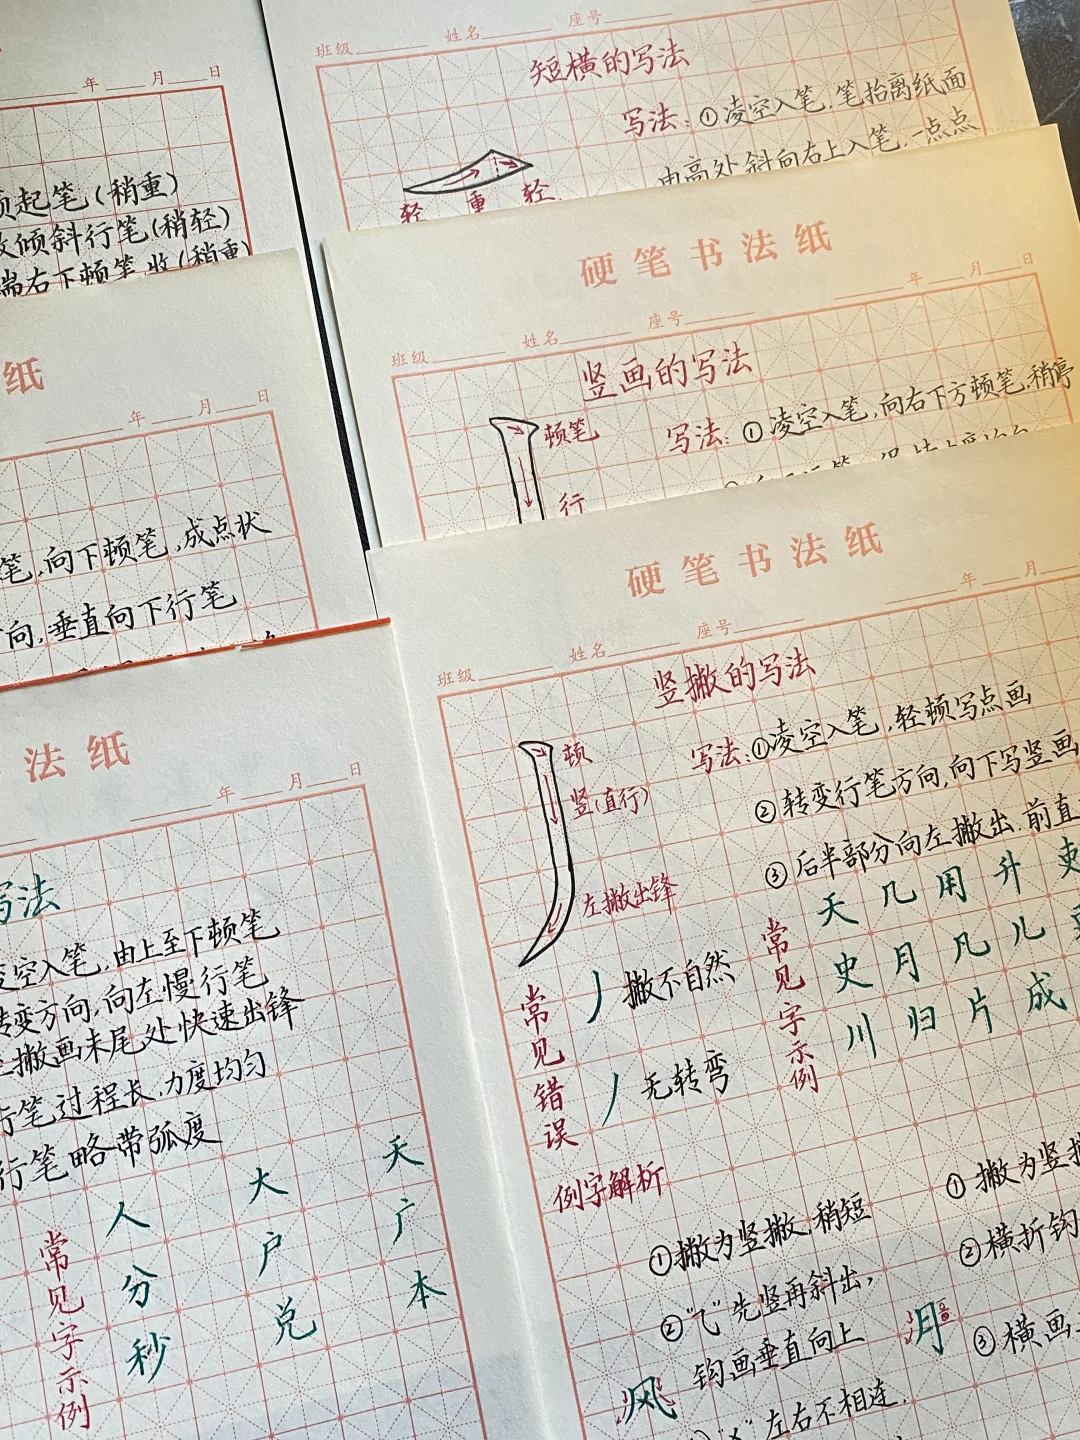 年 月 日
起笔(稍重)
倾斜行笔(稍轻)
端右下顿笔,收(稍重)
班级 姓名 座号
短横的写法
写法:①凌空入笔,笔抬离纸面
由高处斜向右上入笔,一点点
轻 重 轻
纸
年 月 日
笔,向下顿笔,成点状
向,垂直向下行笔
硬笔书法纸
年 月 日
班级 姓名 座号
竖画的写法
顿笔
写法:①凌空入笔,向右下方顿笔,稍停
行
法纸
年 月 日
写法
凌空入笔,由上至下顿笔
转变方向,向左慢行笔
撇画末尾处快速出锋
行笔过程长,力度均匀
行笔略带弧度
常见字示例
人 大 天
分 户 广
秒 兑 本
硬笔书法纸
年 月
班级 姓名 座号
竖撇的写法
顿
竖(直行)
左撇出锋
写法:①凌空入笔,轻顿写点画
②转变行笔方向,向下写竖画
③后半部分向左撇出.前直
常见错误
丿 撇不自然
丿 无转弯
常见字示例
天 几 用 升
史 月 凡 儿
川 归 片 成
例字解析
①撇为竖撇,稍短
②"乁"先竖再斜出,
钩画垂直向上
左右不相连.
风
①撇为竖撇
②横折钩
③横画
月